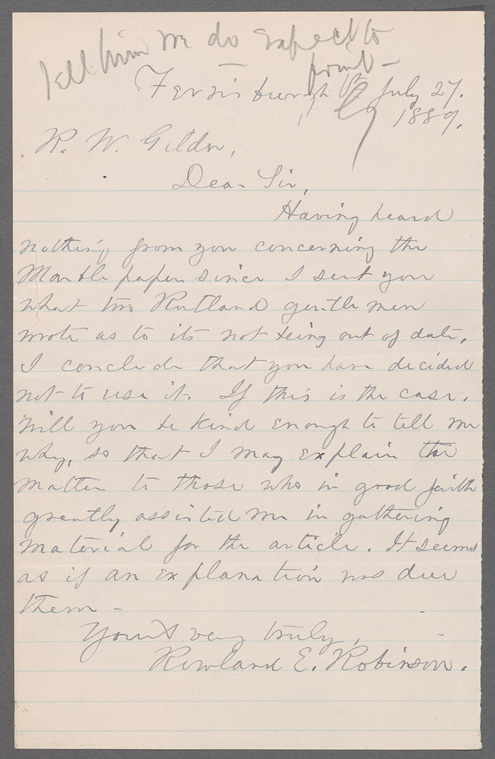 Tell him we do expect to
print—
Ferrisburgh Vt. July 27.
1889.
R. W. Gilder,
Dear Sir,
Having heard
nothing from you concerning the
Marble paper since I sent you
what two Rutland gentlemen
wrote as to its not being out of date,
I conclude that you have decided
not to use it. If this is the case,
will you be kind enough to tell me
why, so that I may explain the
matter to those who in good faith
greatly assisted me in gathering
material for the article. It seems
as if an explanation was due
them—
Yours very truly,
Rowland E. Robinson.